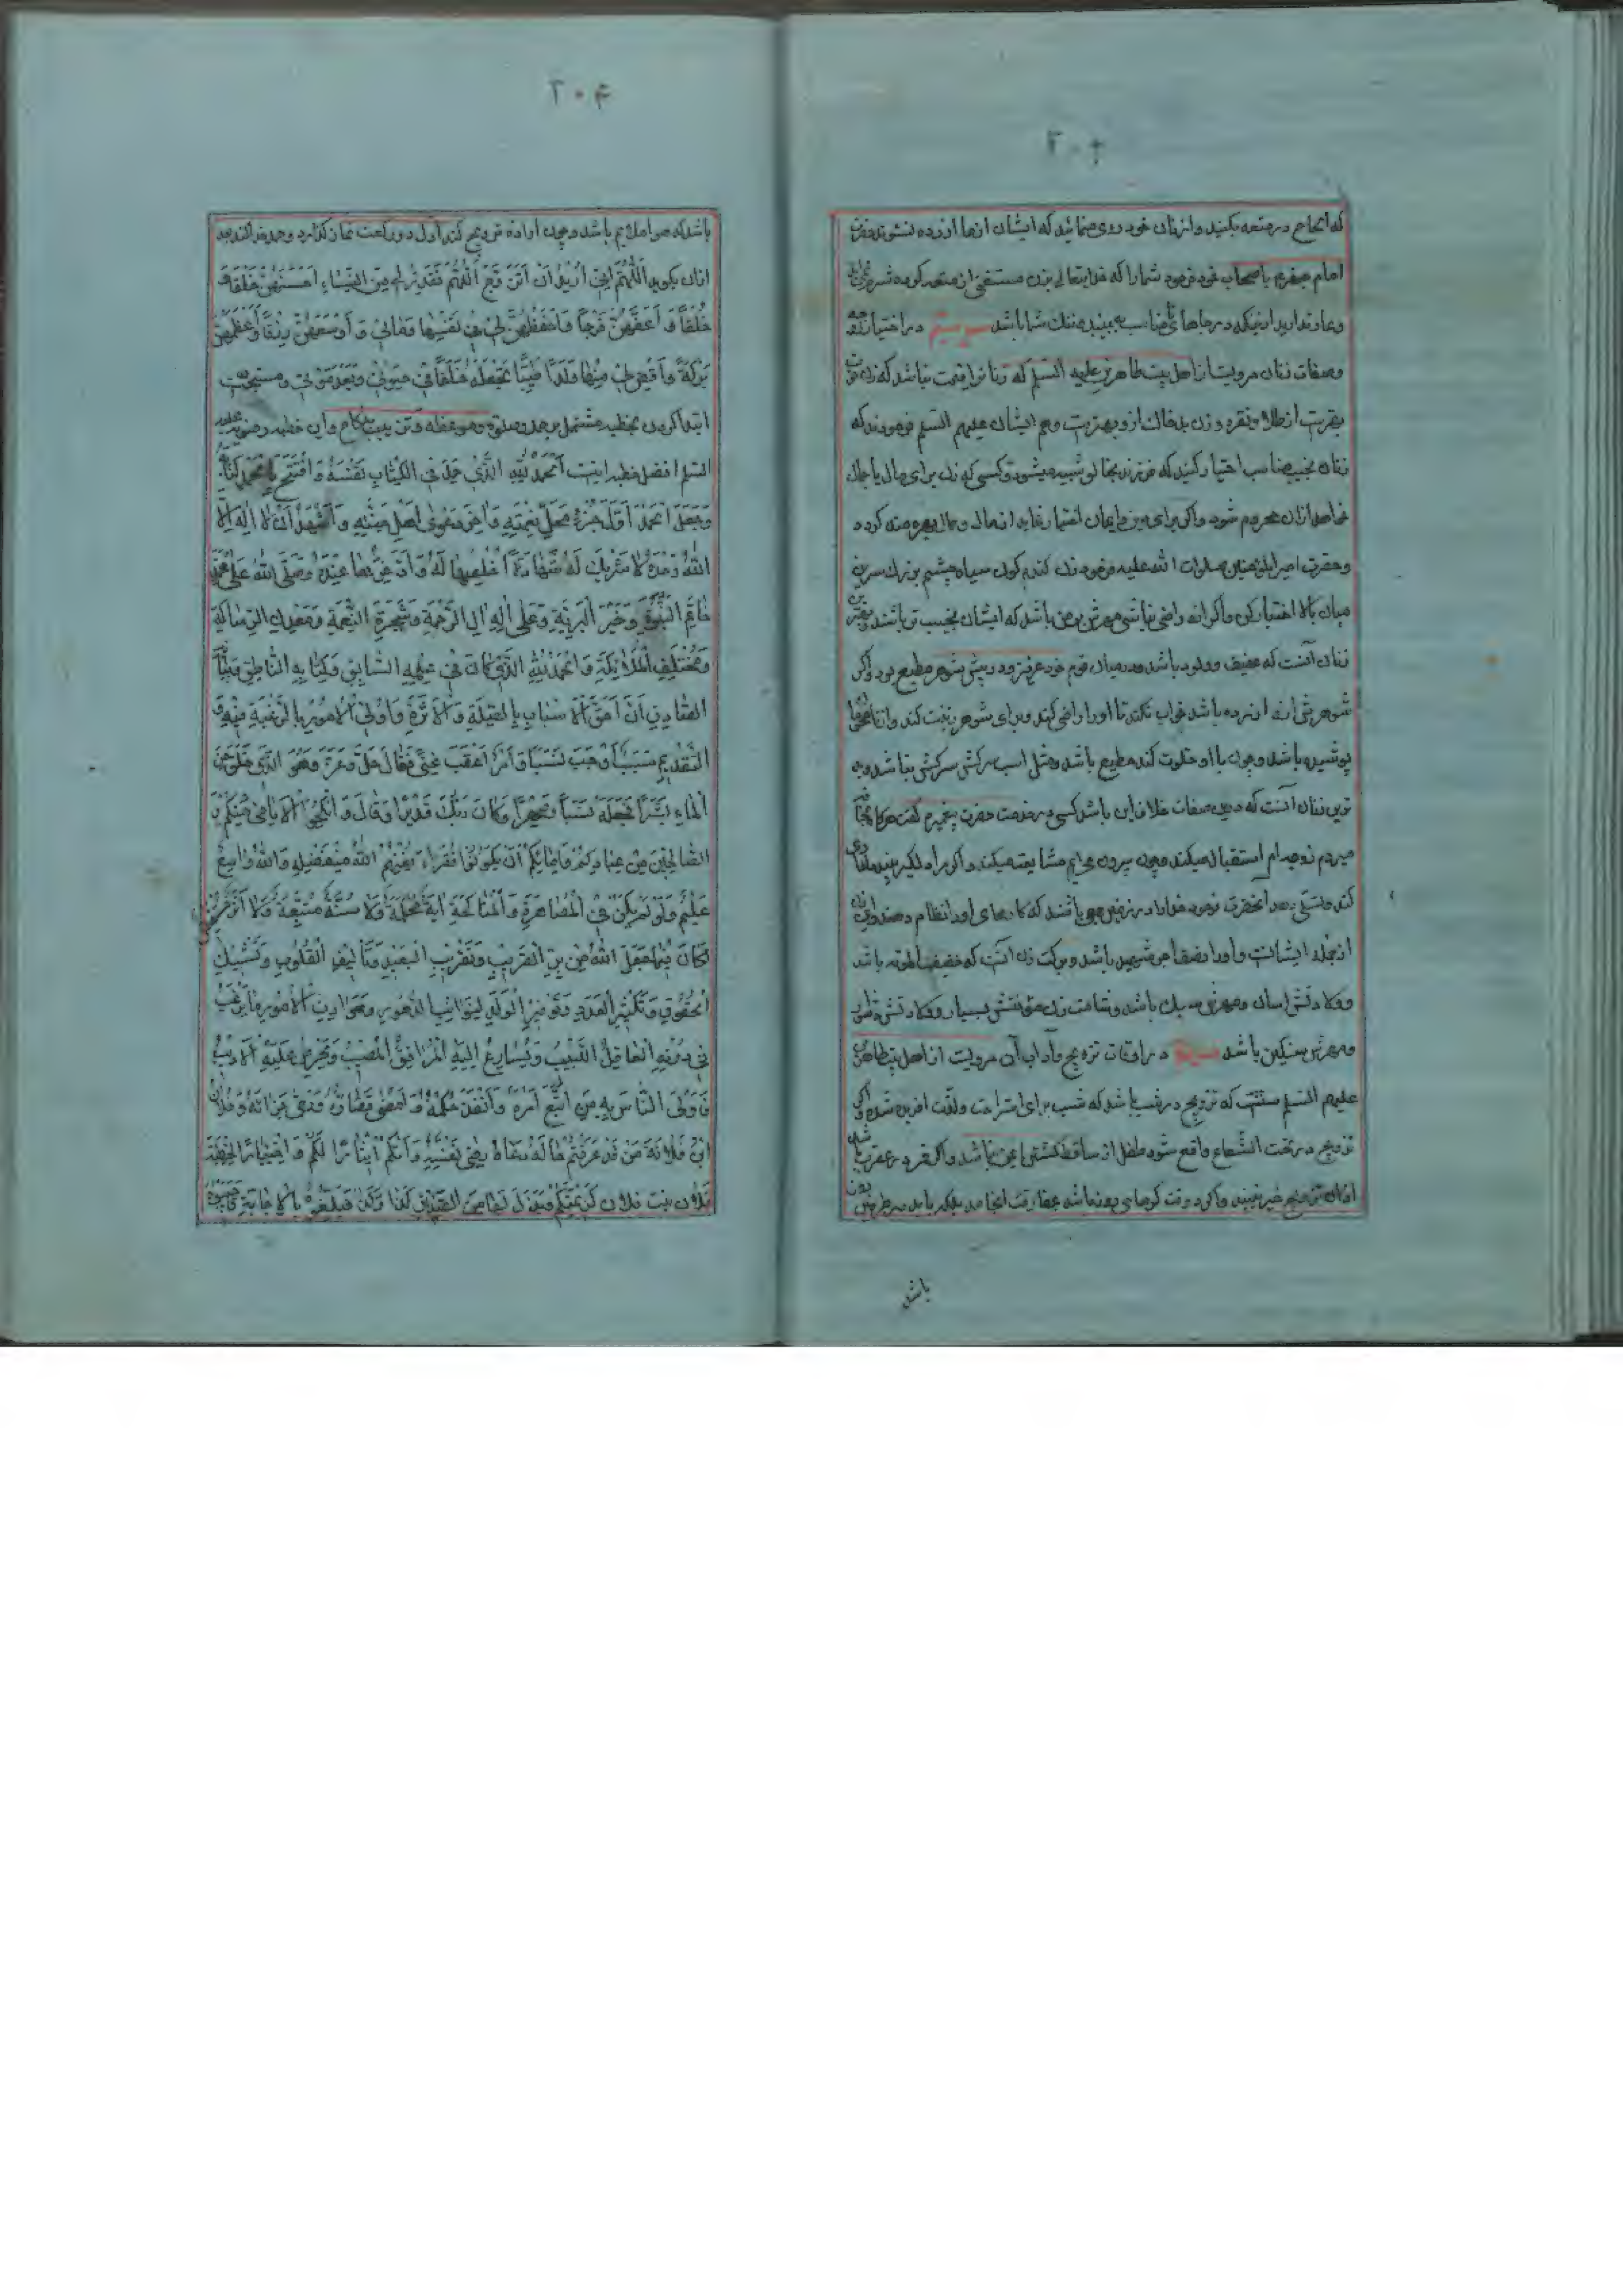 ۲۰۳
که الحاح در متعه بکنید و از زنان خود روی منمائید که ایشان ازها ازرده نشوند حضرت
امام جعفر م باصحاب خود فرمود شما را که خدایتعالی بزن مستغنی از متعه کرده
و عار ندارید از اینکه در جاهای نامناسب به بینید و ننك شما باشد در اختیار زوجه
و صفات زنان مرویست از اهل بیت طاهرین علیه السلم که زنا نرا قیمت نباشد که زن خوب
بهتر است از طلا و نقره و زن بد خاك ازو بهتر است و هم ایشان علیهم السلم فرمودند که
زنان نجیب مناسب اختیار کنید که فرزند بخالو شبیه میشود و کسی که زن برای مال یا جمال
خواهد ازان محروم شود و اگر برای دین و ایمان اختیار نماید از مال و جمال بهره مند کردد
و حضرت امیرالمؤمنین صلوات الله علیه فرمود زن کندم کون سیاه چشم بزرك سرین
میان بالا اختیار کن و اگر از او راضی نباشی مهرش بر من باشد که ایشان نجیب تر باشند و بهترین
زنان آنست که عفیف و ولود باشد و در میان قوم خود عزیز و در پیش شوهر مطیع بود و اگر
شوهرش ازو ازرده باشد خواب نکند تا او را راضی کند و برای شوهر زینت کند و از نامحرم
پوشیده باشد و چون با او خلوت کند مطیع باشد و مثل اسب سرکش سرکش نباشد و بد
ترین زنان آنست که در وی صفات خلاف این باشد کسی در خدمت حضرت پیغمبر م گفت هرکاه بخانه
میروم زوجه ام استقبال میکند و چون بیرون می ایم مشایعت میکند و اگر مرا دلگیر بیند
کند و تسلی دهد انحضرت فرمود خدا را در زمین جمعی باشند که کارهای او را انتظام دهند و این زن
از جمله ایشانست و او را نصف اجر شهید باشد و برکت زن آنست که خفیف المؤنه باشد
و ولادتش اسان و مهرش سبك باشد و شامت زن مؤنتش بسیار و ولادتش دشوار
و مهرش سنکین باشد در اوقات تزویج و آداب آن مرویست از اهل بیت طاهرین
علیهم السلم سنتست که تزویج در شب باشد که شب برای استراحت و لذت افریده شده و اگر
تزویج در تحت الشعاع واقع شود طفل از او ساقط شود باشد و اگر قمر در عقرب باشد
ازان تزویج خیر نبیند و اگر در وقت کرمای روز باشد بمفارقت انجامد بلکه باید در طرفین
باشد
۲۰۴
باشد که هوا ملایم باشد و چون اراده تزویج کند اول دو رکعت نماز بکذارد و حمد خدا کند بعد
ازان بکوید اَللّهُمَّ اِنّی اُریدُ اَنْ اَتَزَوَّجَ اَللّهُمَّ فَقَدِّرْ لی مِنَ النِّساءِ اَحْسَنَهُنَّ خَلْقًا وَ
خُلْقًا وَ اَعَفَّهُنَّ فَرْجًا وَ اَحْفَظَهُنَّ لی فی نَفْسِها وَ مالی وَ اَوْسَعَهُنَّ رِزْقًا وَ اَعْظَمَهُنَّ
بَرَکَةً وَ اَقْضِ لی مِنْها وَلَدًا طَیِّبًا تَجْعَلُهُ خَلَفًا فی حَیوتی وَ بَعْدَ مَوْتی و مستحب است
ابتدا کردن بخطبه مشتمل بر حمد و صلوة و موعظه و ترتیب نکاح و این خطبه رضویه علیه
السلم افضل خطبه ایست اَلْحَمْدُ لِلّهِ الَّذی حَمِدَ فِی الْکِتابِ نَفْسَهُ وَ افْتَتَحَ بِالْحَمْدِ کِتابَهُ
وَ جَعَلَ الْحَمْدَ اَوَّلَ جَزاءِ مَحَلِّ نِعْمَتِهِ وَ اخِرَ دَعْوی اَهْلِ جَنَّتِهِ وَ اَشْهَدُ اَنْ لا اِلهَ اِلاَّ
اللّهُ وَحْدَهُ لا شَرِیكَ لَهُ شَهادَةً اُخْلِصُها لَهُ وَ اَدَّخِرُها عِنْدَهُ وَ صَلَّی اللّهُ عَلی مُحَمَّدٍ
خاتَمِ النُّبُوَّةِ وَ خَیْرِ الْبَرِیَّةِ وَ عَلی الِهِ الِ الرَّحْمَةِ وَ شَجَرَةِ النِّعْمَةِ وَ مَعْدِنِ الرِّسالَةِ
وَ مُخْتَلَفِ الْمَلائِکَةِ وَ الْحَمْدُ لِلّهِ الَّذی کانَ فی عِلْمِهِ السّابِقِ وَ کِتابِهِ النّاطِقِ وَ بَیانِهِ
الصّادِقِ اَنَّ اَحَقَّ الْاَسْبابِ بِالصِّلَةِ وَ الْاَثَرَةِ وَ اَوْلَی الْاُمُورِ بِالرَّغْبَةِ فیهِ وَ
التَّقْدیمِ سَبَبًا وَجَبَ نَسَبًا وَ اَمْرًا اَعْقَبَ غِنًی فَقالَ جَلَّ وَ عَزَّ وَ هُوَ الَّذی خَلَقَ مِنَ
الْماءِ بَشَرًا فَجَعَلَهُ نَسَبًا وَ صِهْرًا وَ کانَ رَبُّكَ قَدیرًا وَ قالَ وَ اَنْکِحُوا الْاَیامی مِنْکُمْ وَ
الصّالِحینَ مِنْ عِبادِکُمْ وَ اِمائِکُمْ اَنْ یَکُونُوا فُقَراءَ یُغْنِهِمُ اللّهُ مِنْ فَضْلِهِ وَ اللّهُ واسِعٌ
عَلیمٌ وَ لَوْ لَمْ یَکُنْ فِی الْمُصاهَرَةِ وَ الْمُناکَحَةِ ایَةٌ مُحْکَمَةٌ وَ لا سُنَّةٌ مُتَّبَعَةٌ وَ لا اَثَرٌ
لَکانَ فیما جَعَلَ اللّهُ مِنْ بِرِّ الْقَریبِ وَ تَقْریبِ الْبَعیدِ وَ تَأْلیفِ الْقُلُوبِ وَ تَشْبیكِ
الْحُقُوقِ وَ تَکْثیرِ الْعَدَدِ وَ تَوْفیرِ الْوَلَدِ لِنَوائِبِ الدُّهُورِ وَ حَوادِثِ الْاُمُورِ ما یَرْغَبُ
فی دُونِهِ الْعاقِلُ اللَّبیبُ وَ یُسارِعُ اِلَیْهِ الْمُوَفَّقُ الْمُصیبُ وَ یَحْرِصُ عَلَیْهِ الْاَدیبُ
فَاَوْلَی النّاسِ بِهِ مَنِ اتَّبَعَ اَمْرَهُ وَ اَنْفَذَ حُکْمَهُ وَ اَمْضی قَضاءَهُ وَ رَجی جَزاءَهُ وَ فُلانُ
ابْنُ فُلانَةَ مَنْ قَدْ عَرَفْتُمْ حالَهُ دَعاهُ رِضی نَفْسِهِ وَ اَتاکُمْ ایثارًا لَکُمْ وَ اخْتِیارًا لِخِطْبَةِ
فُلانَ بِنْتِ فُلانٍ کَریمَتِکُمْ وَ بَذَلَ لَها مِنَ الصَّداقِ کَذا وَ کَذا فَتَلَقَّوْهُ بِالْاِجابَةِ